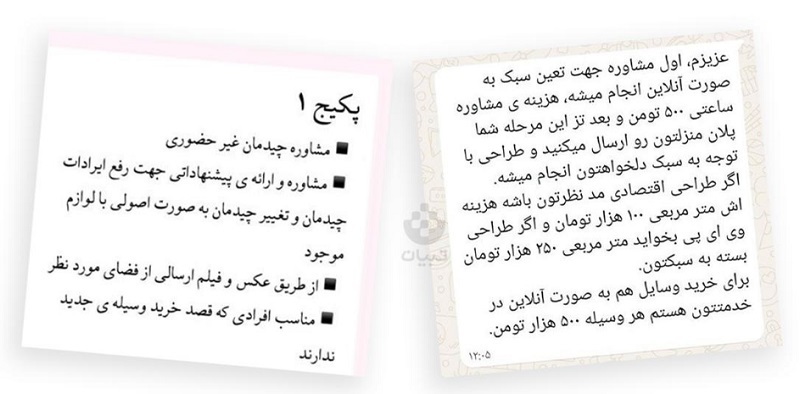 عزیزم، اول مشاوره جهت تعین سبک به
صورت آنلاین انجام میشه، هزینه ی مشاوره
ساعتی ۵۰۰ تومن و بعد تز این مرحله شما
پلان منزلتون رو ارسال میکنید و طراحی با
توجه به سبک دلخواهتون انجام میشه.
اگر طراحی اقتصادی مد نظرتون باشه هزینه
اش متر مربعی ۱۰۰ هزار تومان و اگر طراحی
وی ای پی بخواید متر مربعی ۲۵۰ هزار تومان
بسته به سبکتون.
برای خرید وسایل هم به صورت آنلاین در
خدمتتون هستم هر وسیله ۵۰۰ هزار تومن.
۱۲:۰۵
پکیج ۱
■ مشاوره چیدمان غیر حضوری
■ مشاوره و ارائه ی پیشنهاداتی جهت رفع ایرادات
چیدمان و تغییر چیدمان به صورت اصولی با لوازم
موجود
■ از طریق عکس و فیلم ارسالی از فضای مورد نظر
■ مناسب افرادی که قصد خرید وسیله ی جدید
ندارند
تبیان